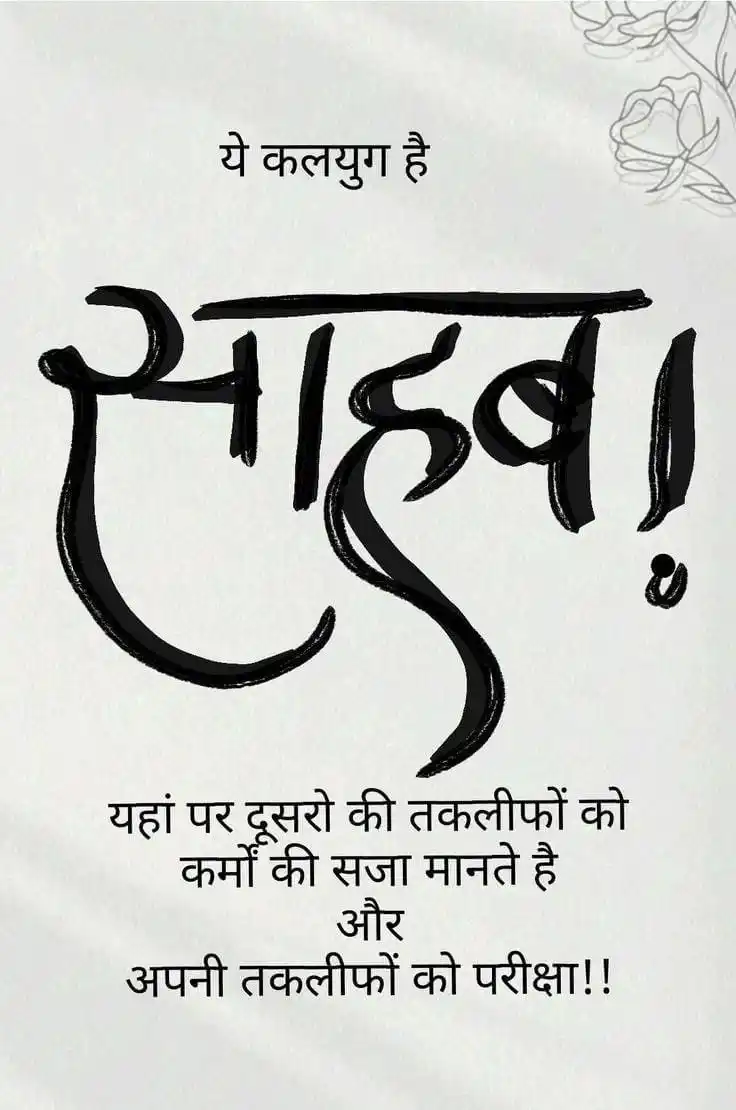 ये कलयुग है
साहब!
यहां पर दूसरो की तकलीफों को
कर्मों की सजा मानते है
और
अपनी तकलीफों को परीक्षा!!